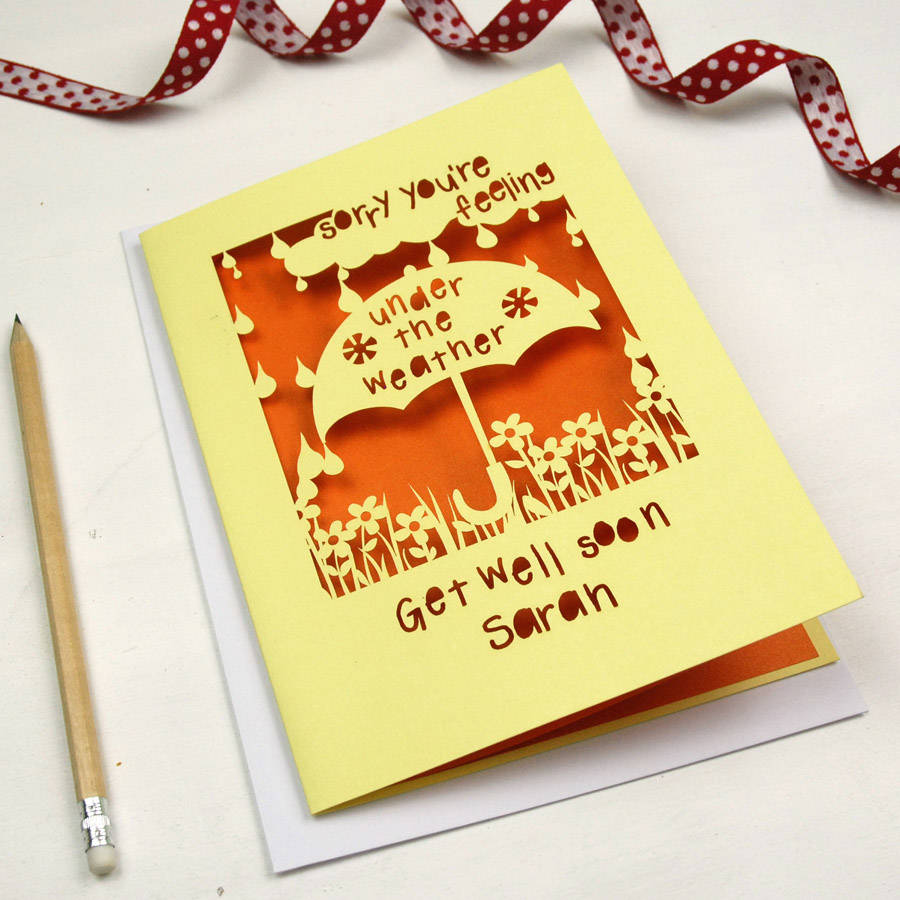 sorry you're
feeling
under
the
weather
Get well soon
Sarah